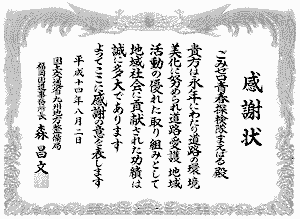 感謝状
ごみゼロ青春探検隊まえばる殿
貴方は永年にわたり道路の環境
美化に努められ道路愛護、地域
活動の優れた取り組みとして
地域社会に貢献された功績は
誠に多大であります
よってここに感謝の意を表します
平成十四年八月二日
国土交通省九州地方整備局
福岡国道事務所長 森昌文